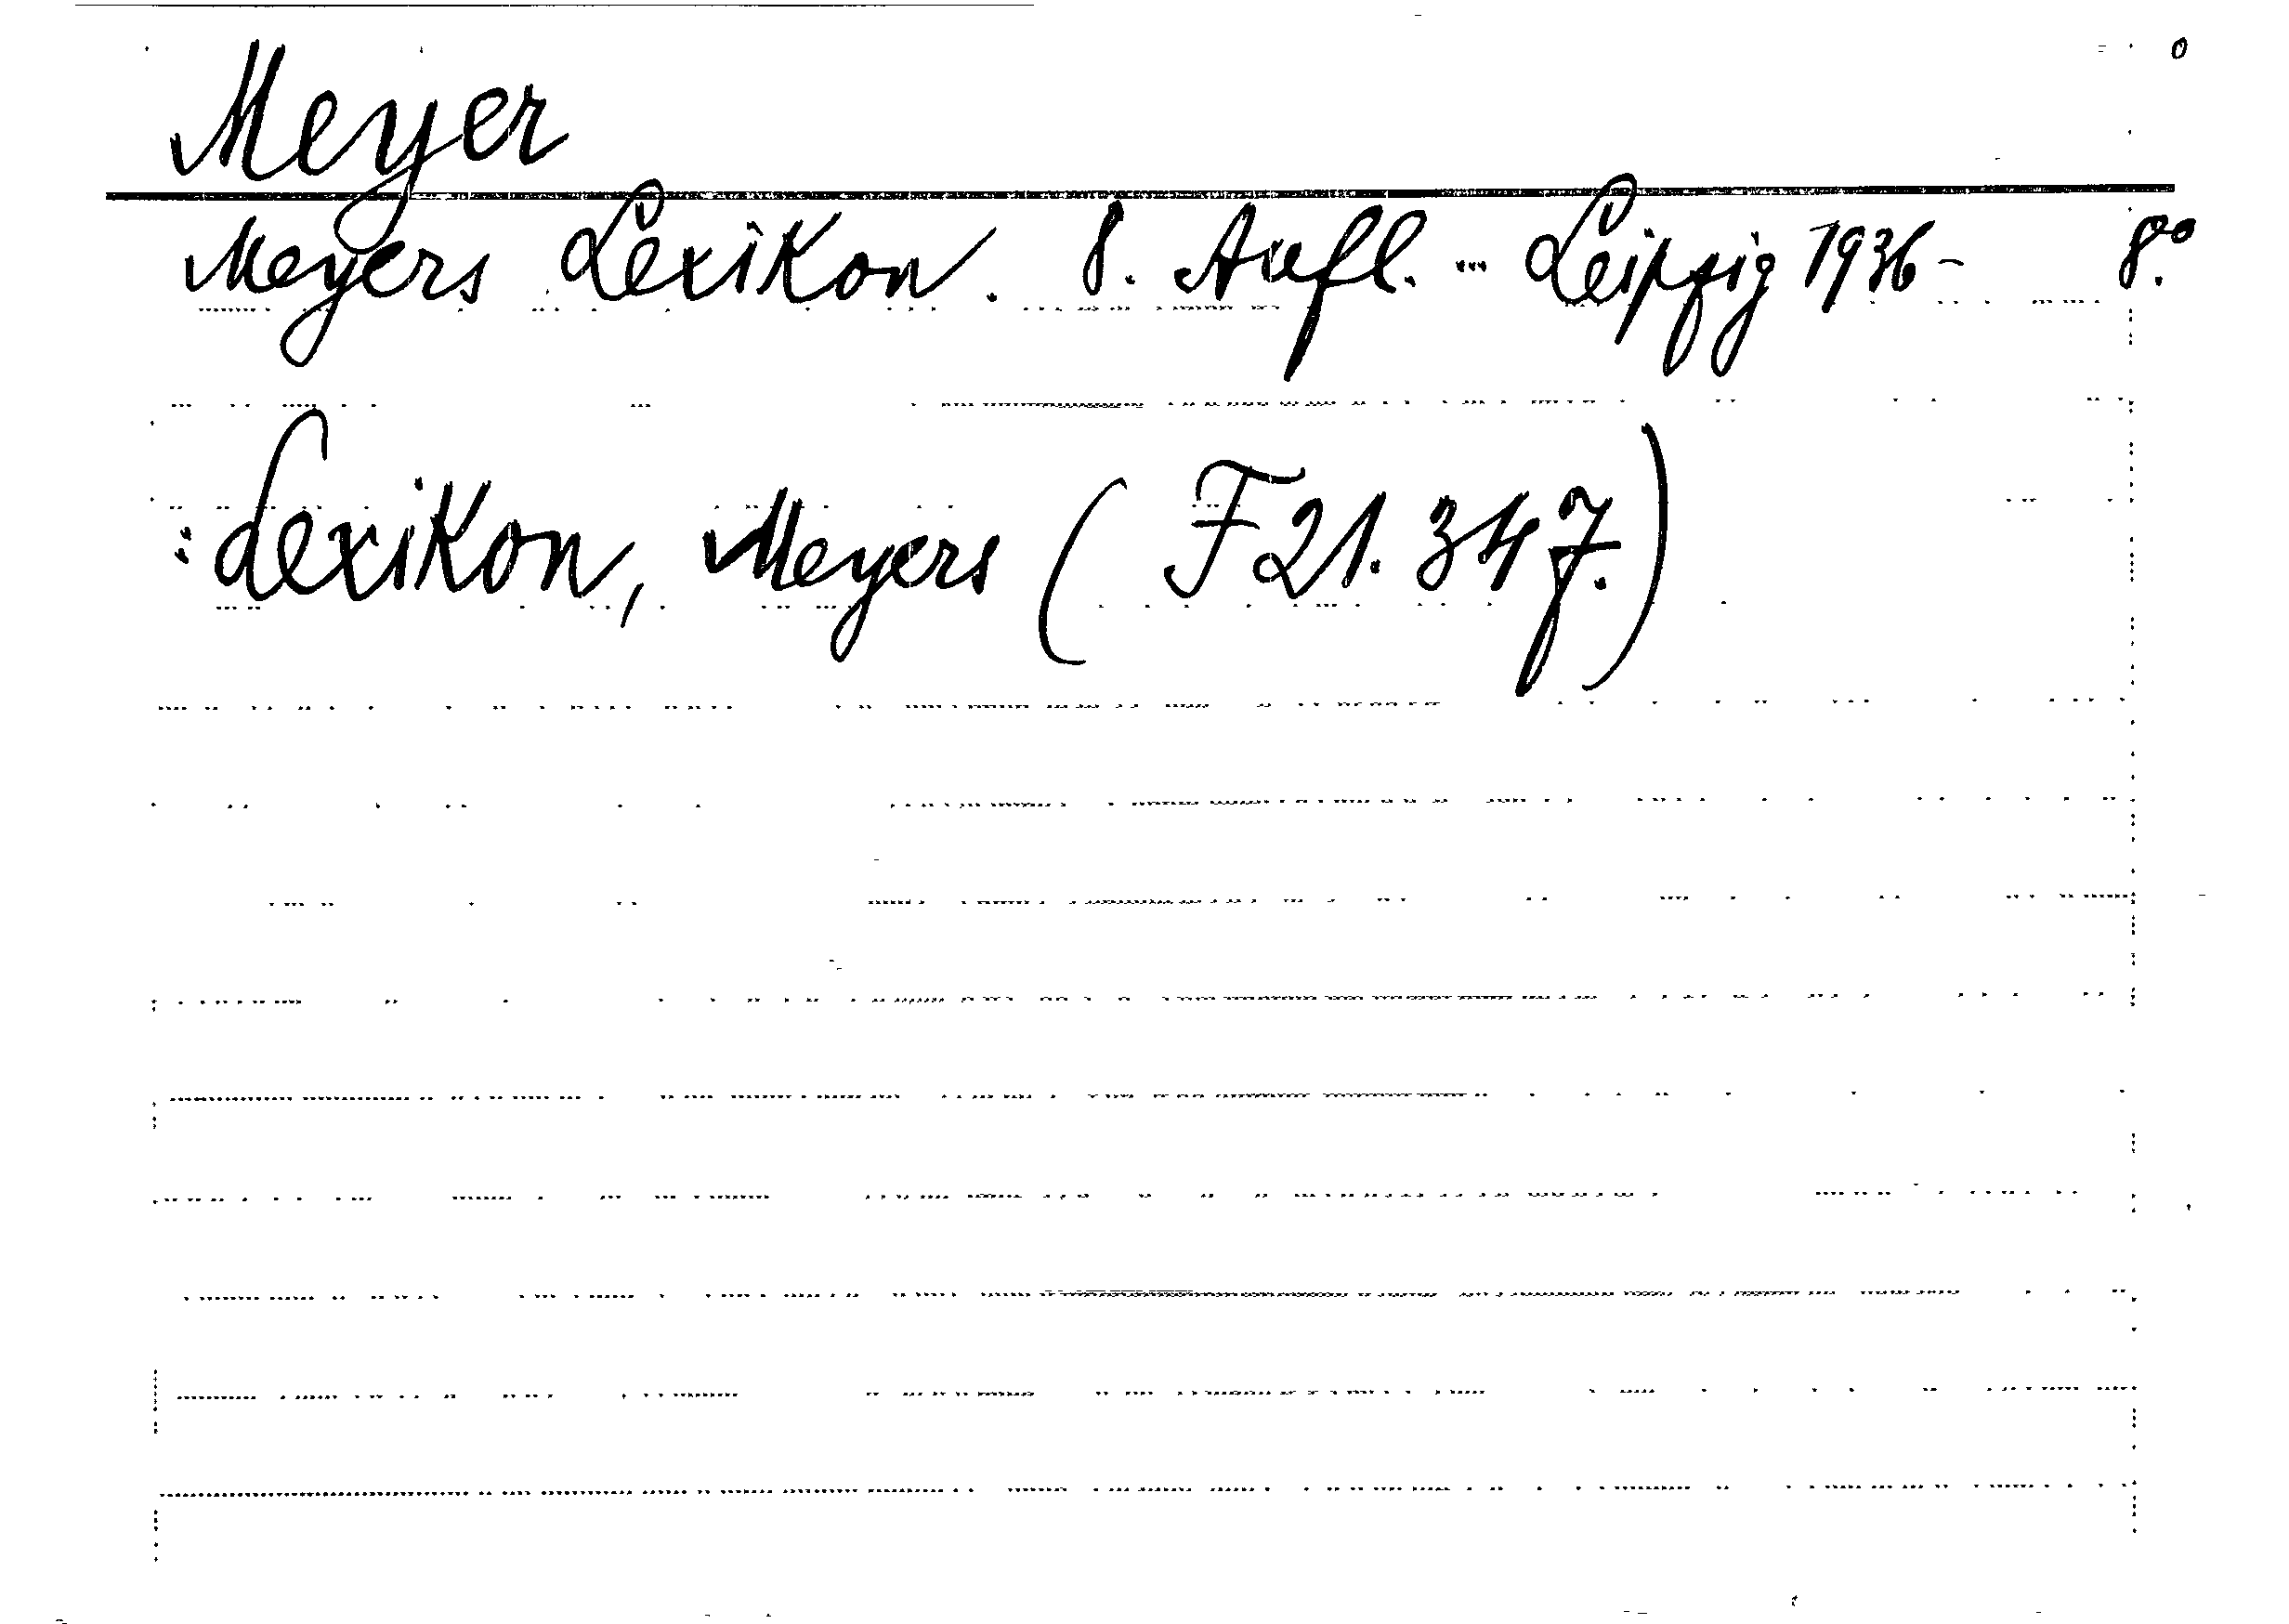 Meyer
Meyers Lexikon. 8. Aufl. ... Leipzig 1936- 8.°
: Lexikon, Meyers ( F 21. 347.)